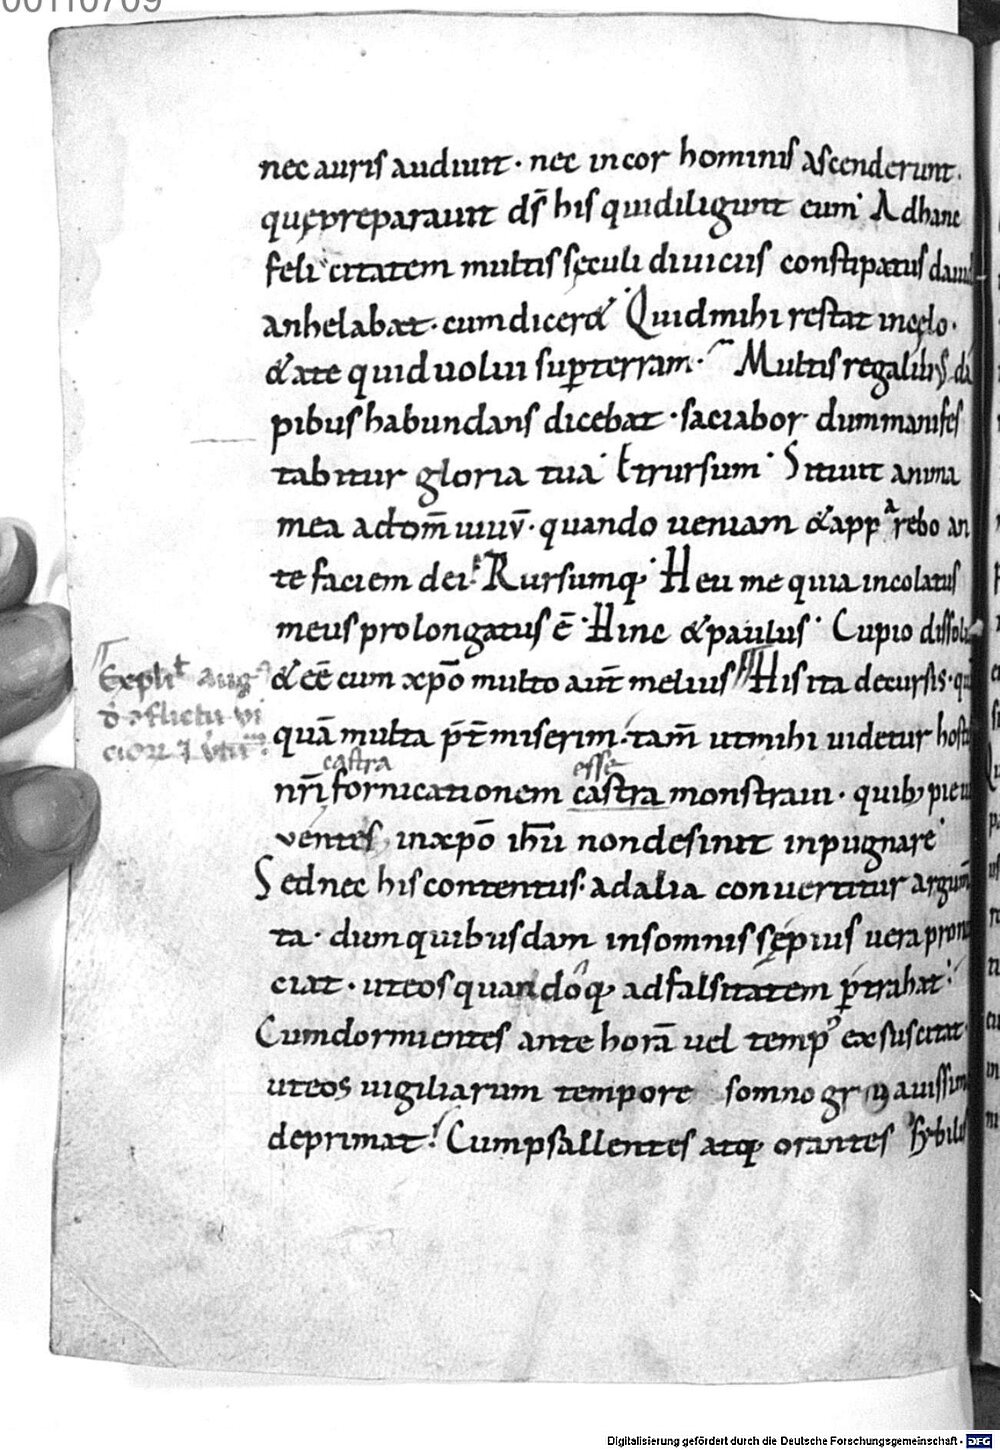 00110709
nec auris audiuit · nec incor hominis ascenderunt.
quę preparauit ds̄ his quidiligunt eum Adhanc
felicitatem multis sęculi diuiciis constipatus dauid
anhelabat · cumdiceret Quidmihi restat incęlo ·
&ate quid uolui sup terram · Multis regalibus da
pibus habundans dicebat · saciabor dummanifes
tabitur gloria tua Etrursum Sitiuit anima
mea addom̄ uiuū · quando ueniam &apparebo an
te faciem dei · Rursumq; Heu me quia incolatus
meus prolongatus ē Hinc &paulus Cupio dissolui
&eē cum xpō multo aut̄ melius His ita decursis · q
Explit aug
d̄ ɔflictu vi
cioꝝ & v̄tut
quā multa p̄t̄ miserim · tam̄ utmihi uidetur hosti
castra esse
nr̄i fornicationem castra monstraui · quib; pie ui
ventes inxpō ihū nondesinit inpugnare
Sednec his contentus · adalia conuertitur argum̄
ta · dum quibusdam insomnis sępius uera pronun
ciat · uteos quandoq; adfalsitatem ptrahat
Cumdormientes ante horā uel temp᾽ exsuscitat
uteos uigiliarum tempore somno grauissimo
deprimat Cumpsallentes atq; orantes sybilis
Digitalisierung gefördert durch die Deutsche Forschungsgemeinschaft - DFG